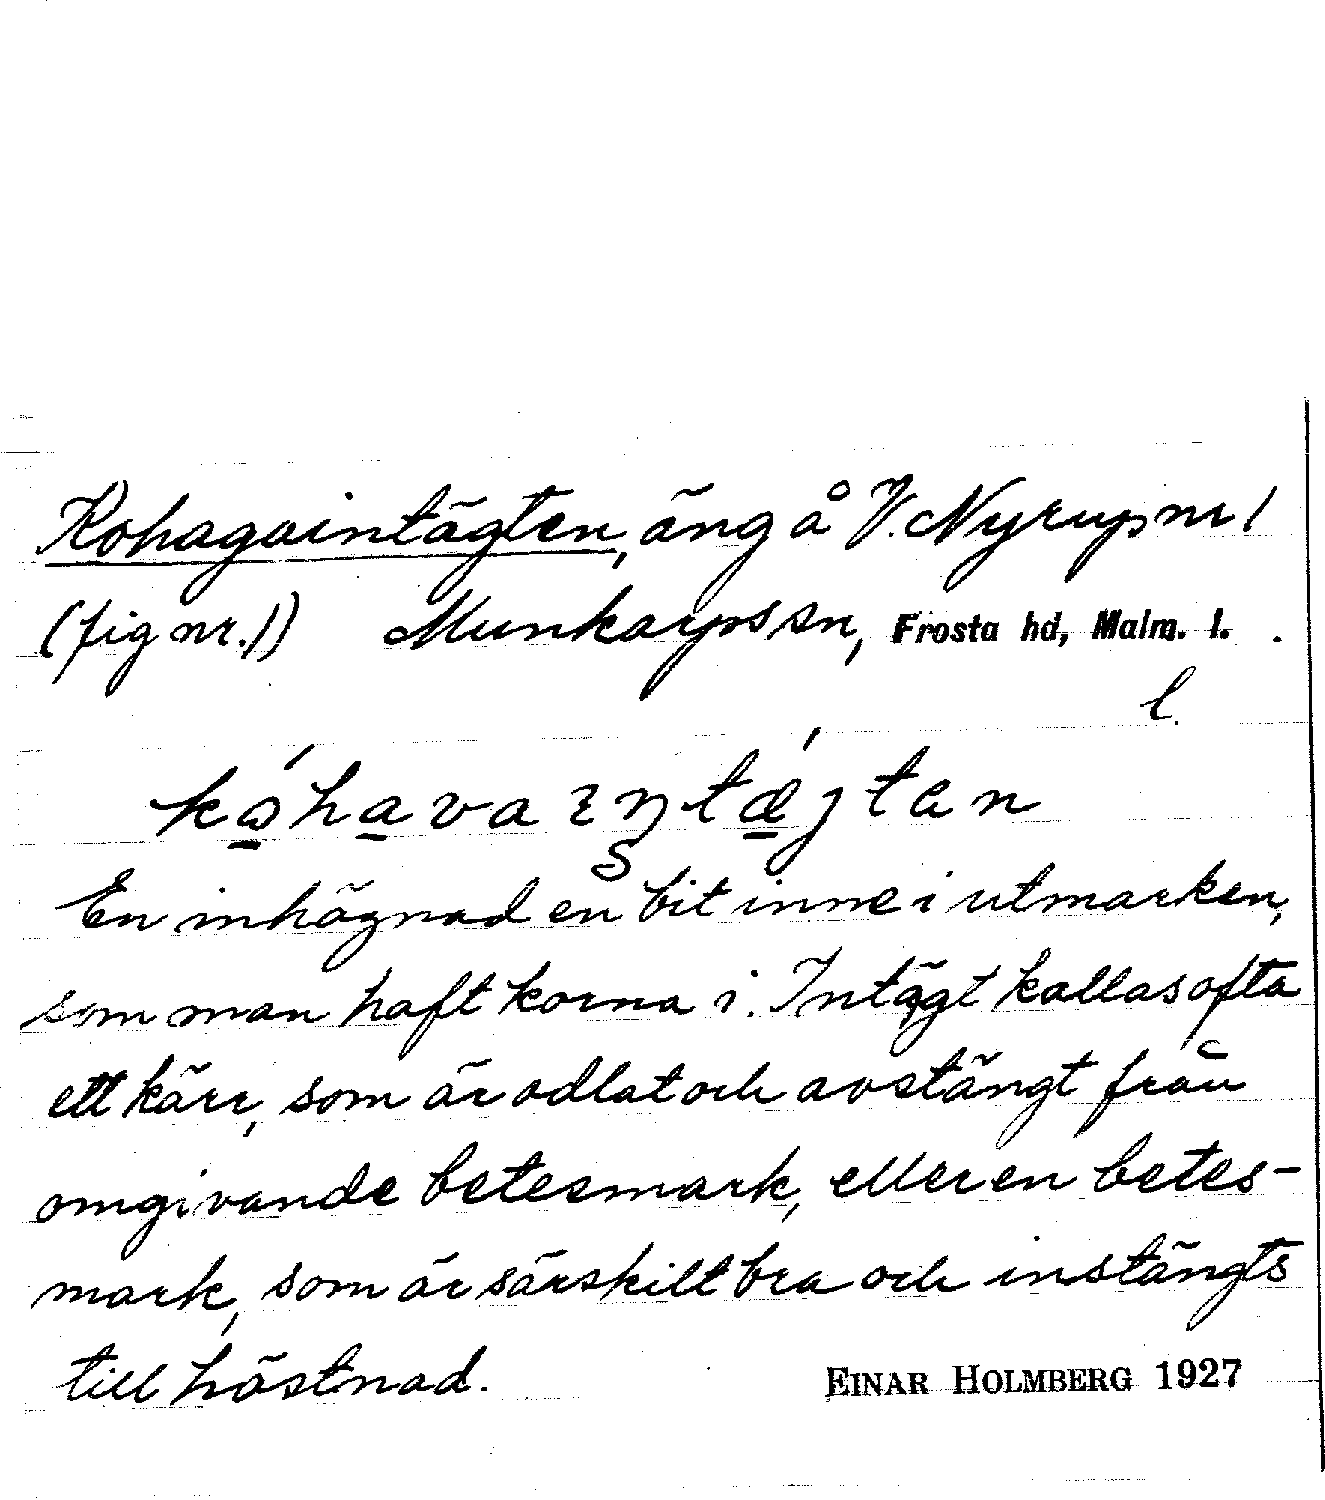 Kohagaintägten, äng å V. Nyrup nr 1
(fig nr. 1) Munkarps sn, Frosta hd, Malm. l. .
l.
En inhägnad en bit inne i utmarken,
som man haft korna i. Intägt kallas ofta
ett kärr, som är odlat och avstängt från
omgivande betesmark, eller en betes-
mark, som är särskilt bra och instängts
till höstnad.
EINAR HOLMBERG 1927